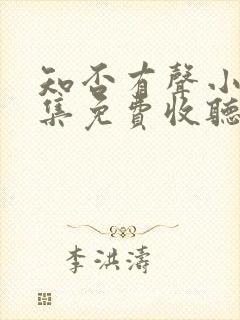 知否有聲小
集免費收聽
李洪濤